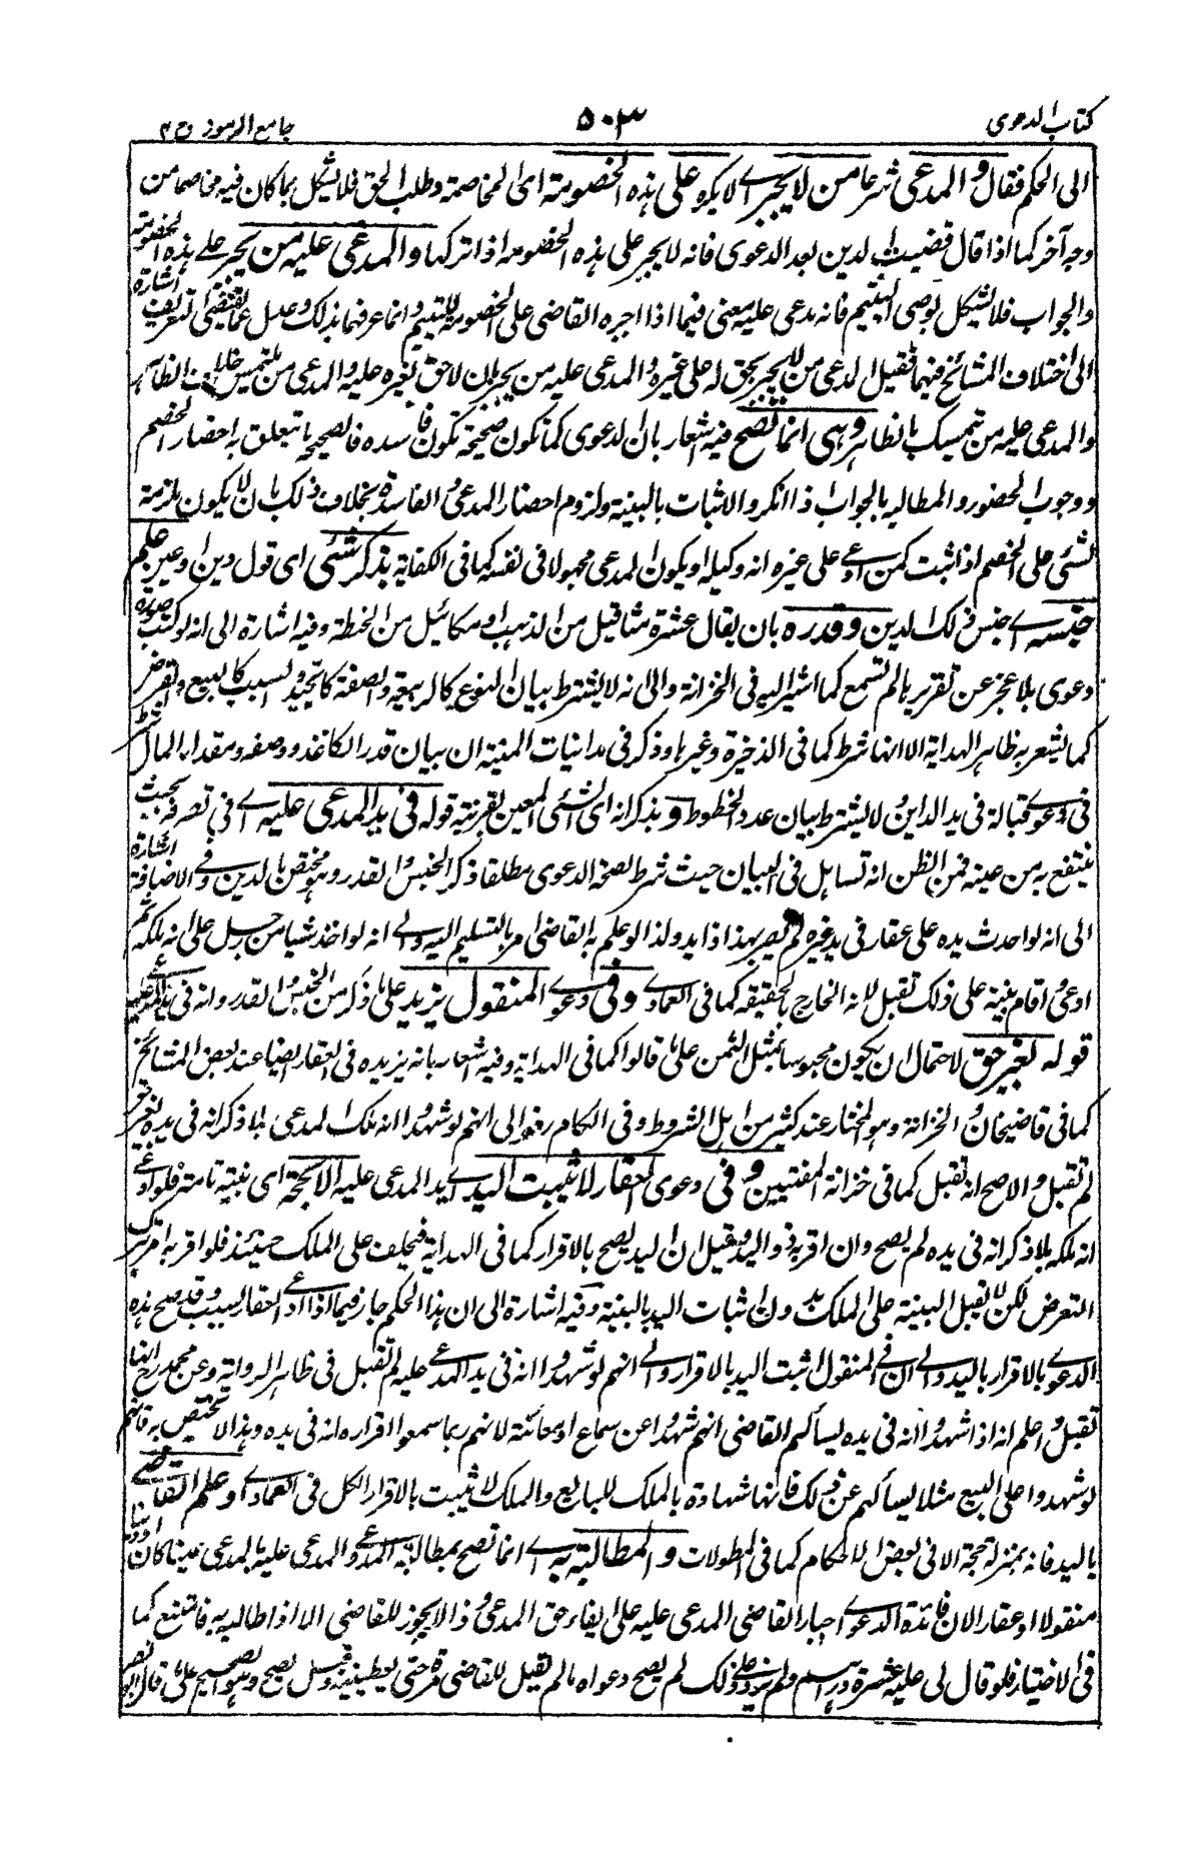 كتاب الدعوى ٥٠٣ جامع الرموز ج ٢
الى الحكم فقال و المدعى شرعا من لا يجبر اى لا يكره على هذه الخصومة اى المخاصمة وطلب الحق فلا يشكل بما كان فيه مخاصما من
وجه آخر كما اذا قال قضيت الدين بعد الدعوى فانه لا يجبر على هذه الخصومة اذا تركها والمدعى عليه من يجبر على هذه الخصومة
والجواب فلا يشكل بوصى اليتيم فانه مدعى عليه معنى فيما اذا اجبره القاضى على الخصومة لليتيم وانما عرفهما بذلك وعدل عما يقتضى التعريف اشارة
الى اختلاف المشائخ فيهما فقيل المدعى من يخبر بحق له على غيره والمدعى عليه من يخبر بان لا حق لغيره عليه والمدعى من يلتمس خلاف الظاهر
والمدعى عليه من تمسك بالظاهر وهى انما تصح فيه اشعار بان الدعوى كما تكون صحيحة تكون فاسدة فالصحيحة ما تتعلق به احضار الخصم
ووجوب الحضور والمطالبة بالجواب اذا انكر والاثبات بالبينة ولزوم احضار المدعى والفاسدة بخلاف ذلك بان لا يكون يلزمه
شئ على الخصم اذا ثبت كمن ادعى على غيره انه وكيله او يكون المدعى مجهولا فى نفسه كما فى الكفاية بذكر شئ اى قول دين او عين علم
جنسه اى جنس ذلك الدين وقدره بان يقال عشرة مثاقيل من الذهب او مكائيل من الحنطة وفيه اشارة الى انه لو كتب صورة
دعوى بلا عجز عن تقريرها لم تسمع كما اشير اليه فى الخزانة والى انه لا يشترط بيان النوع كالربيعة والصفة كالجيد والسبب كالبيع والقرض
كما يشعر به ظاهر الهداية الا انها شرط كما فى الذخيرة وغيرها وذكر فى مداينات المنية ان بيان قدر الكاغذ ووصفه ومقدار المال شرط
فى دعوى قبالة فى يد الداين ولا يشترط بيان عدد الخطوط و يذكر انه اى الشئ المعين بقرينة قوله فى يد المدعى عليه اى فى تصرفه بحيث
ينتفع به من عينه فمن الظن انه تساهل فى البيان حيث شرط لصحة الدعوى مطلقا ذكر الجنس والقدر وهو مختص بالدين وفى الاضافة اشارة
الى انه لو احدث يده على عقار فى يد غيره لم يصر بهذا ذا يد ولذا لو علم به القاضى امر بالتسليم اليه والى انه لو اخذ شيئا من رجل على انه ملكه ثم
ادعى واقام بينة على ذلك تقبل لانه الخارج بالحقيقة كما فى العمادى وفى دعوى المنقول يزيد على ما ذكر من الجنس والقدر وانه فى يد المدعى عليه
قوله بغير حق لاحتمال ان يكون محبوسا بمثل الثمن على ما قالوا كما فى الهداية وفيه اشعار بانه يزيده فى العقار ايضا عند بعض المشائخ
كما فى قاضيخان والخزانة وهو المختار عند كثير من اهل الشروط وفى الكلام رمز الى انهم لو شهدوا انه ملك المدعى بلا ذكر انه فى يده بغير حق
لم تقبل والاصح انه تقبل كما فى خزانة المفتيين و فى دعوى العقار لا تثبت اليد اى يد المدعى عليه الا بحجة اى بينة تامة فلو ادعى
انه ملكه بلا ذكر انه فى يده لم يصح وان اقر به ذو اليد وقيل ان اليد يصح بالاقرار كما فى الهداية فيحلف على الملك حينئذ فلو اقر به امر بترك
التعرض لكن لا تقبل البينة على الملك بدون اثبات اليد بالبينة وفيه اشارة الى ان هذا الحكم جار فيما اذا ادعى العقار بسبب وقد صح هذه
الدعوى بالاقرار باليد والى ان فى المنقول اثبت اليد بالاقرار والى انهم لو شهدوا انه فى يد المدعى عليه لم تقبل فى ظاهر الرواية وعن محمد رح انها
تقبل واعلم انه اذا شهدوا انه فى يده يسألهم القاضى انهم شهدوا عن سماع او معاينة لانهم ربما سمعوا اقراره انه فى يده وهذا لا تختص به فانهم
لو شهدوا على البيع مثلا يسألهم عن ذلك فانها شهادة بالملك للبائع والملك لا يثبت بالاقرار الكل فى العمادى وعلم القاضى
باليد فانه بمنزلة حجة الا فى بعض الاحكام كما فى المطولات والمطالبة به اى انما تصح بمطالبة المدعى والمدعى عليه بالمدعى عينا كان او دينا
منقولا او عقارا لان فائدة الدعوى اجبار القاضى المدعى عليه على ايفاء حق المدعى وذا لا يجوز للقاضى الا اذا طالبه به فامتنع كما
فى الاختيار فلو قال لى عليه عشرة دراهم ولم يزد على ذلك لم يصح دعواه ما لم يقل للقاضى مره حتى يعطينيه وقيل يصح وهو الصحيح على ما قال ابو نصر